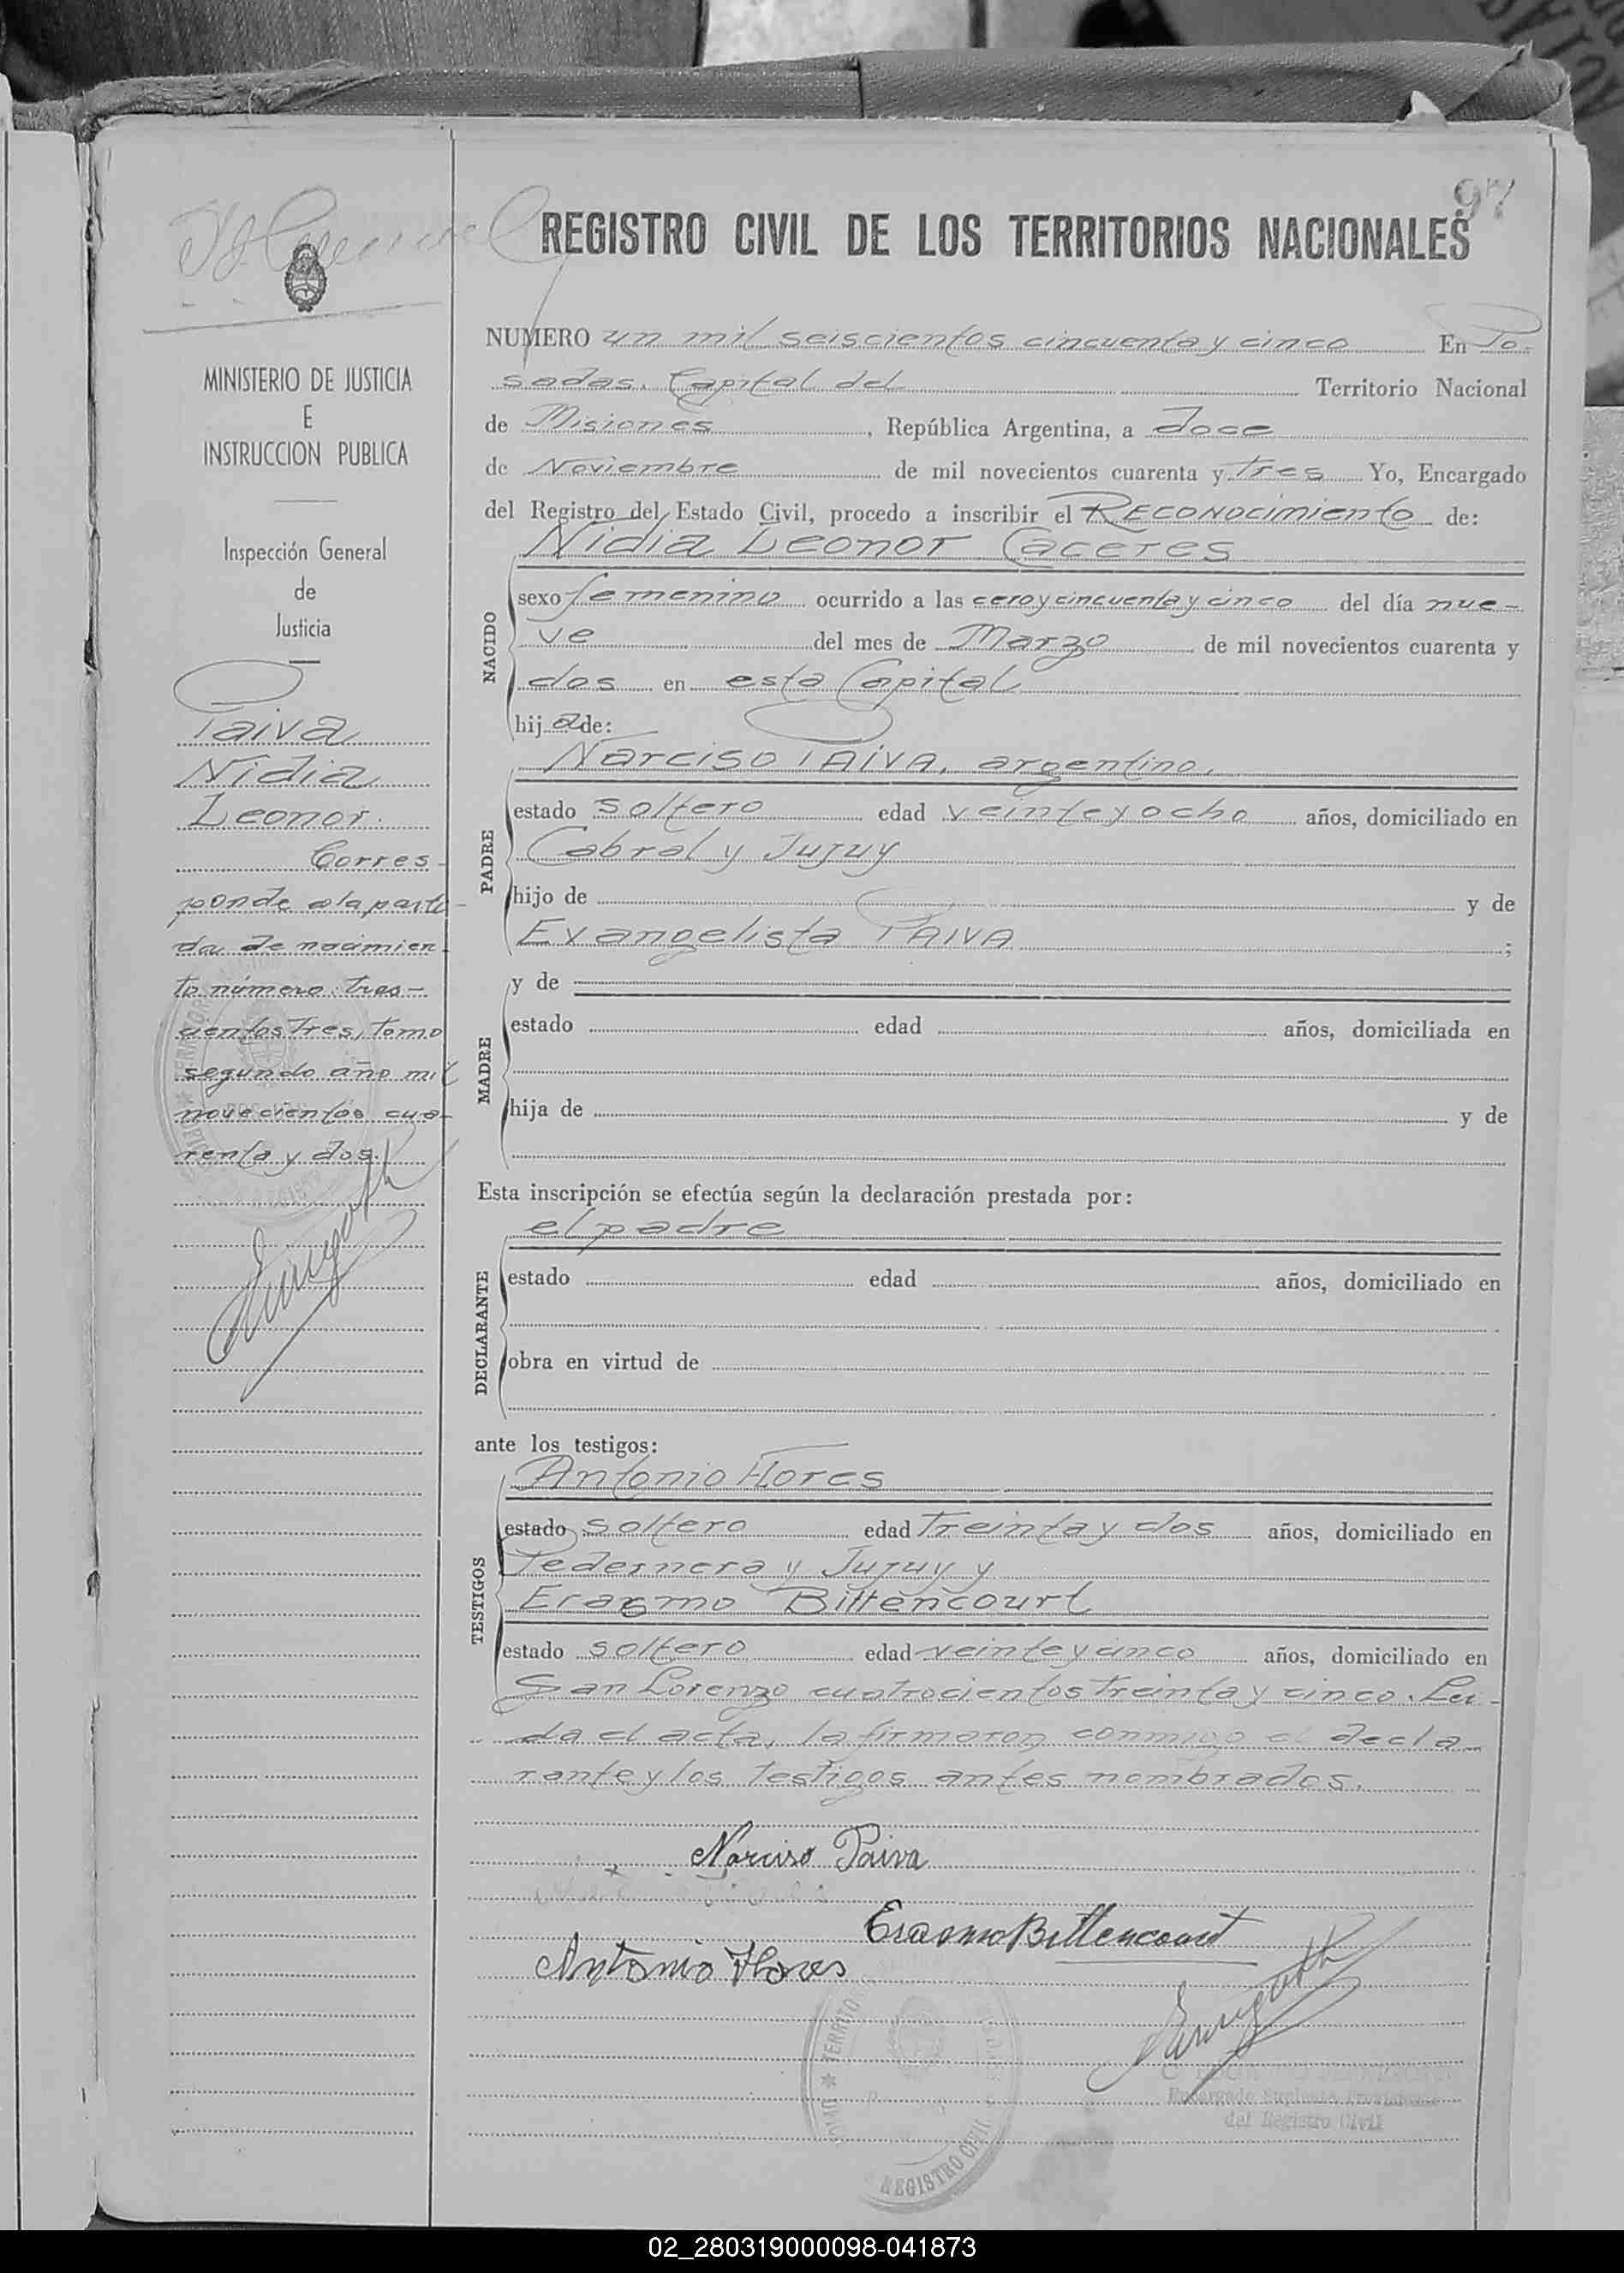 97
REGISTRO CIVIL DE LOS TERRITORIOS NACIONALES
MINISTERIO DE JUSTICIA
E
INSTRUCCION PUBLICA
Inspección General
de
Justicia
Paiva
Nidia
Leonor.
Corres-
ponde a la parti-
da de nacimien-
to número tres-
cientos tres, tomo
segundo año mil
novecientos cua-
renta y dos.
NUMERO un mil seiscientos cincuenta y cinco En Po-
sadas. Capital del Territorio Nacional
de Misiones, República Argentina, a doce
de Noviembre de mil novecientos cuarenta y tres Yo, Encargado
del Registro del Estado Civil, procedo a inscribir el RECONOCIMIENTO de:
Nidia Leonor Caceres
NACIDO
sexo femenino ocurrido a las cero y cincuenta y cinco del día nue-
ve del mes de Marzo de mil novecientos cuarenta y
dos en esta Capital
hija de:
Narciso PAIVA, argentino,
PADRE
estado soltero edad veinte y ocho años, domiciliado en
Cabral y Jujuy
hijo de y de
Evangelista PAIVA ;
y de
MADRE
estado edad años, domiciliada en
hija de y de
Esta inscripción se efectúa según la declaración prestada por:
el padre
DECLARANTE
estado edad años, domiciliado en
obra en virtud de
ante los testigos:
Antonio Flores
TESTIGOS
estado soltero edad treinta y dos años, domiciliado en
Pedernera y Jujuy y
Erasmo Bittencourt
estado soltero edad veinte y cinco años, domiciliado en
San Lorenzo cuatrocientos treinta y cinco. Leí-
da el acta, la firmaron conmigo el decla-
rante y los testigos antes nombrados.
Narciso Paiva
Erasmo Bittencourt
Antonio Flores
TERRITO
REGISTRO CIVIL
Encargado Suplente
del Registro Civil
02_280319000098-041873